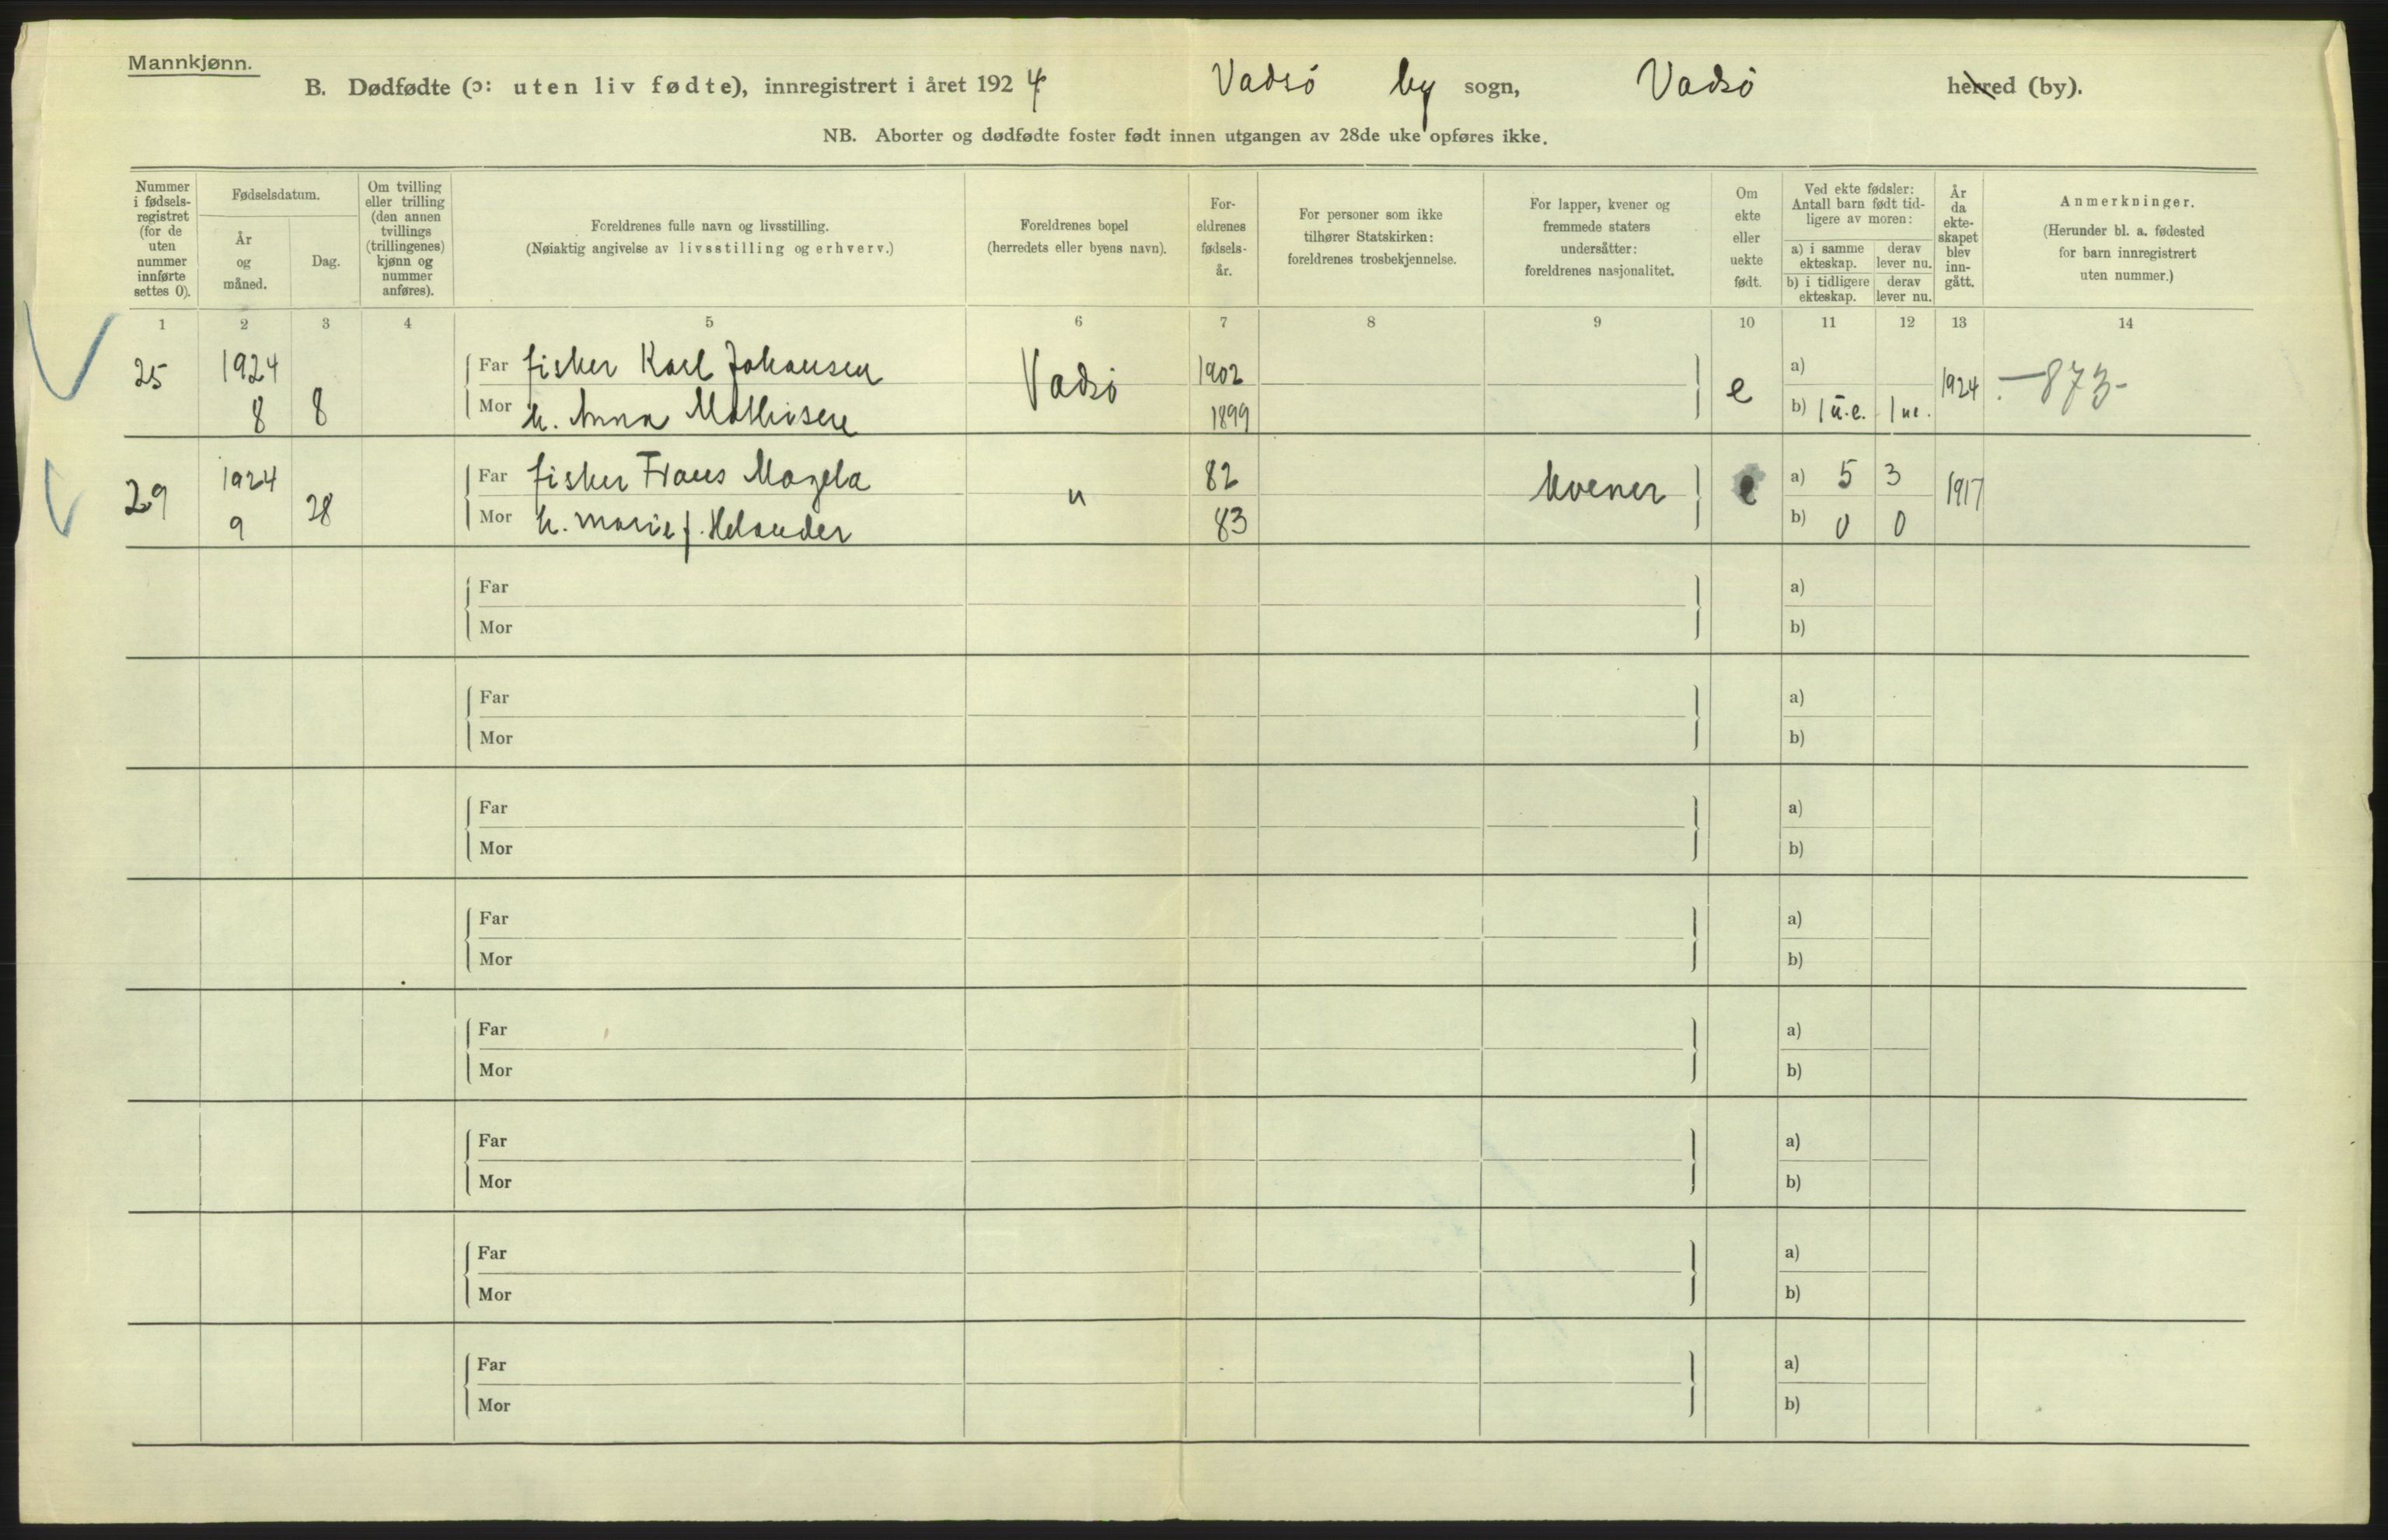 Mannkjønn.
B. Dødfødte (ɔ: uten liv fødte), innregistrert i året 1924 Vadsø by sogn, Vadsø herred (by).
NB. Aborter og dødfødte foster født innen utgangen av 28de uke opføres ikke.
Nummer i fødsels-registret (for de uten nummer innførte settes 0).
Fødselsdatum.
År og måned.
Dag.
Om tvilling eller trilling (den annen tvillings (trillingenes) kjønn og nummer anføres).
Foreldrenes fulle navn og livsstilling.
(Nøiaktig angivelse av livsstilling og erhverv.)
Foreldrenes bopel
(herredets eller byens navn).
For-eldrenes fødsels-år.
For personer som ikke tilhører Statskirken: foreldrenes trosbekjennelse.
For lapper, kvener og fremmede staters undersåtter: foreldrenes nasjonalitet.
Om ekte eller uekte født.
Ved ekte fødsler: Antall barn født tid-ligere av moren:
a) i samme ekteskap.
derav lever nu.
b) i tidligere ekteskap.
derav lever nu.
År da ekte-skapet blev inn-gått.
Anmerkninger.
(Herunder bl. a. fødested for barn innregistrert uten nummer.)
1 2 3 4 5 6 7 8 9 10 11 12 13 14
25 1924 8 8 Far fisker Karl Johansen Vadsø 1902 e a) 1924 -873-
Mor h. Anna Mathisen 1899 b) 1 u.e. 1 ue.
29 1924 9 28 Far fisker Frans Mazela " 82 kvener e a) 5 3 1917
Mor h. Marie J. Helander 83 b) 0 0
Far a)
Mor b)
Far a)
Mor b)
Far a)
Mor b)
Far a)
Mor b)
Far a)
Mor b)
Far a)
Mor b)
Far a)
Mor b)
Far a)
Mor b)